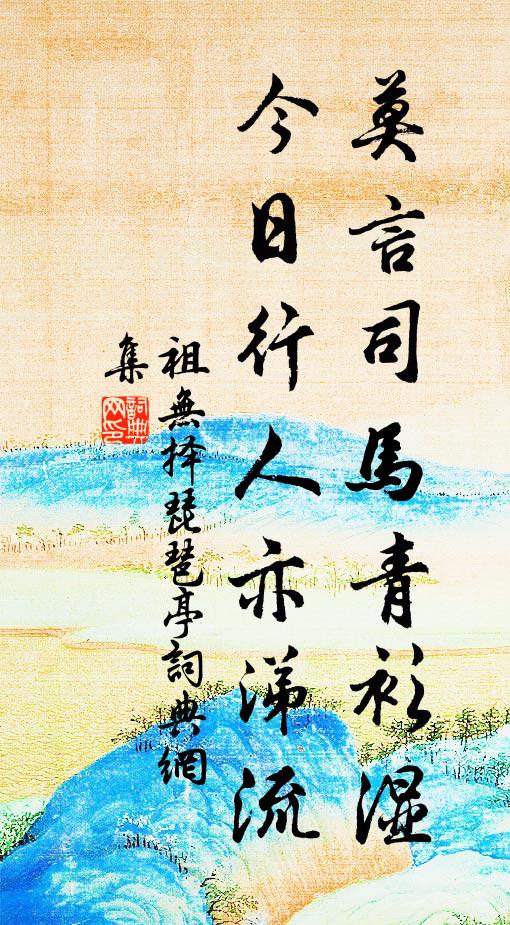 莫言司馬青衫濕
今日行人亦涕流
祖無择琵琶亭詞典網
集
詞典网印